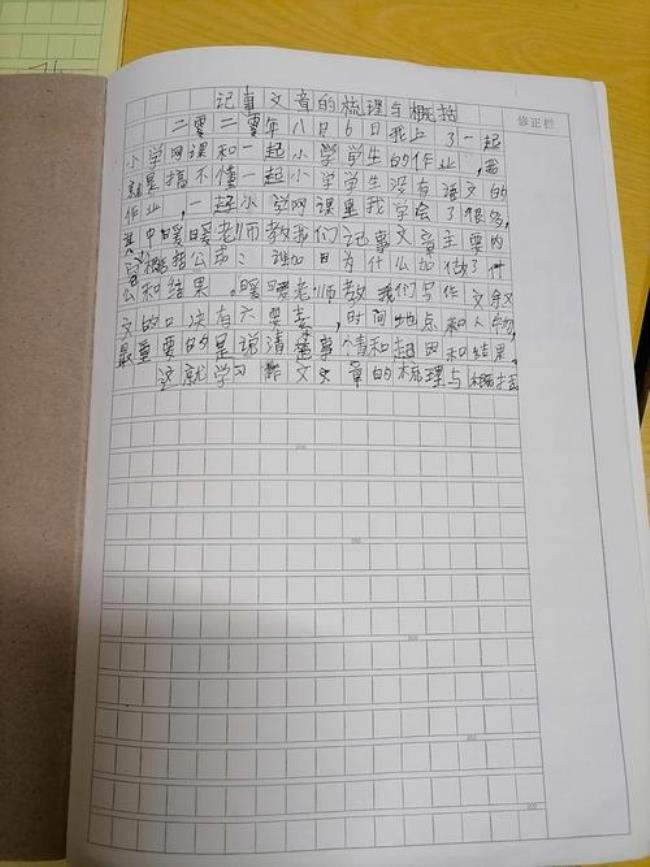 记事文章的梳理与概括
修正栏
二零二零年八月6日我上了一起
小学网课和一起小学学生的作业,
就是搞不懂一起小学学生没有语文的
作业,一起小学网课里我学会了很多,
其中暖暖老师教我们记事文章主要的
概括公式:谁加因为什么加做了什
么和结果。暖暖老师教我们写作文
文的口决有六要素,时间地点和人物,
最重要的是说清楚事情和起因和结果。
这就学习作文文章的梳理与概括